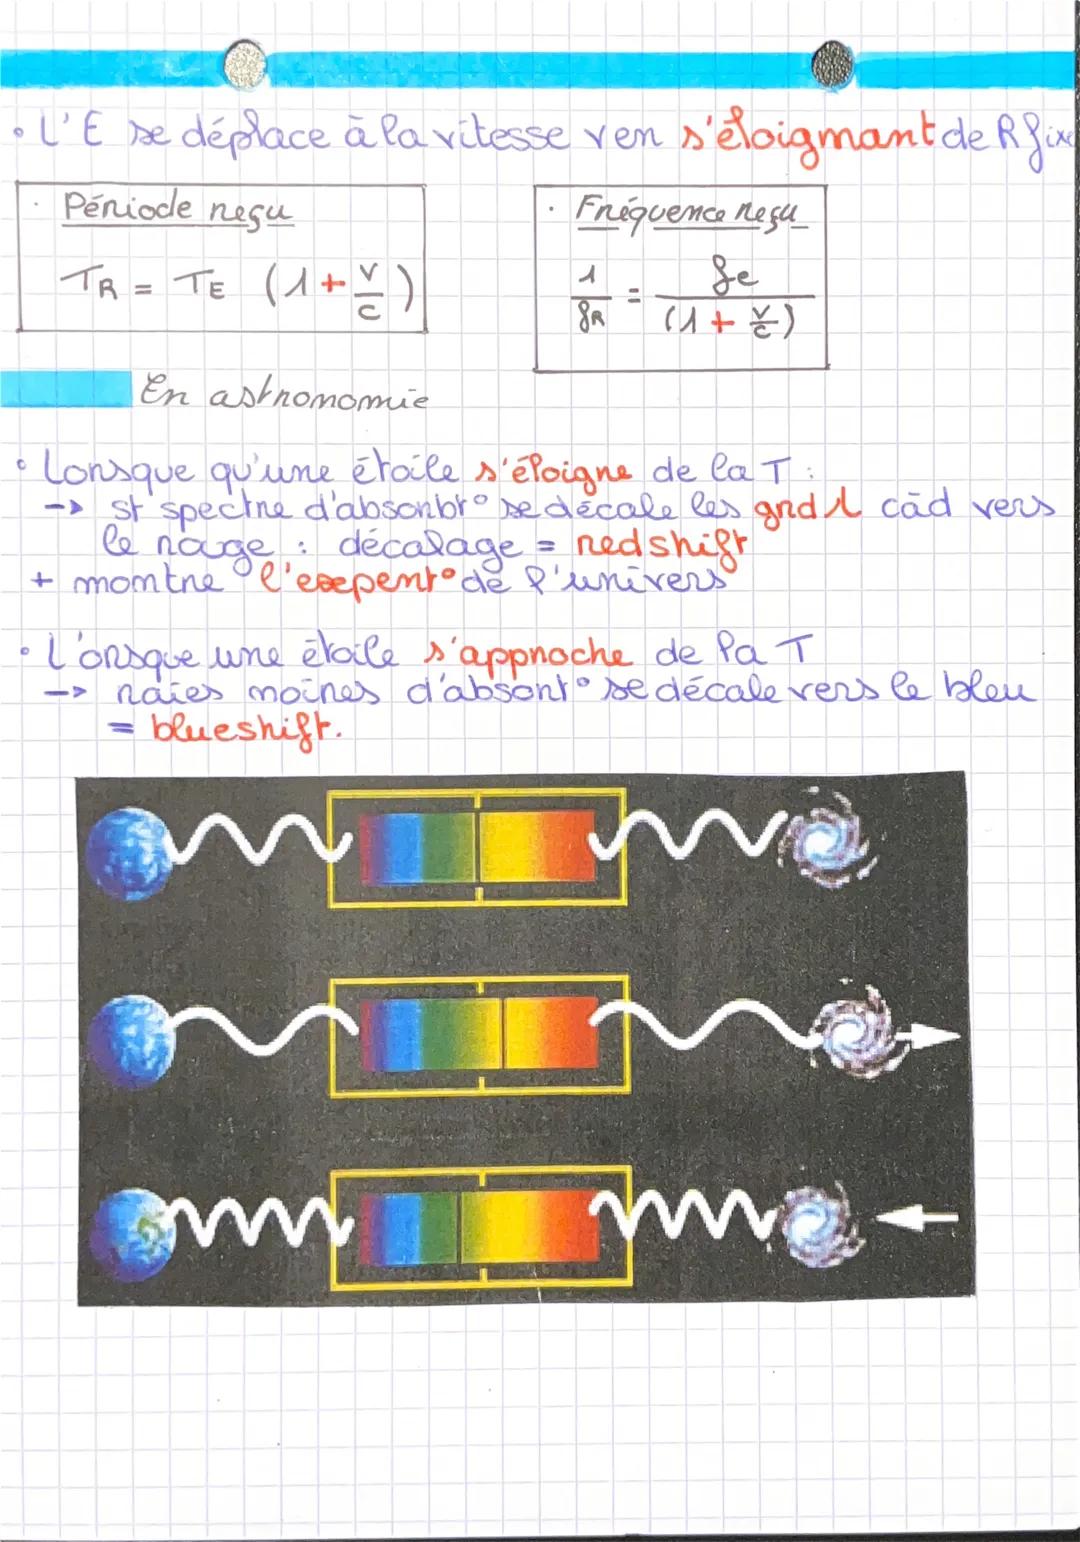 • L'E se déplace à la vitesse v en s'éloignant de R fixe
• Période reçu
TR = TE (1 + v/c)
• Fréquence reçu
1/fR = fe/(1 + v/c)
En astronomie
• Lorsque qu'une étoile s'éloigne de la T :
-> st spectre d'absorbt° se décale les grd λ càd vers
le rouge : décalage = redshift
+ montre l'expent° de l'univers
• L'orsque une étoile s'approche de la T
-> raies noires d'absort° se décale vers le bleu
= blueshift.